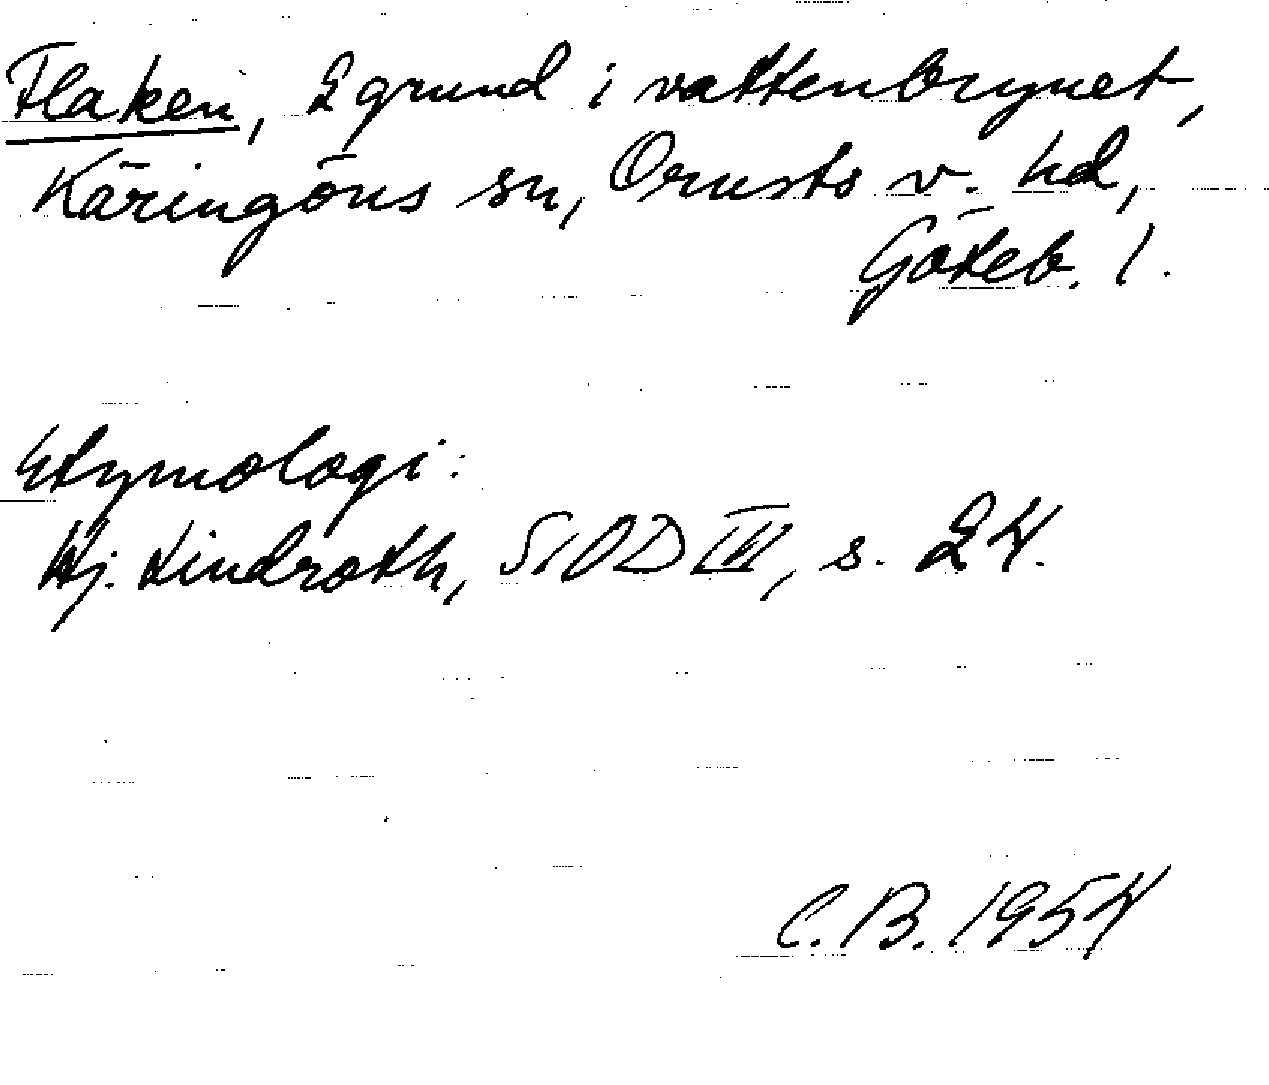 Flaken, 2 grund i vattenbrynet,
Käringöns sn, Orusts v. hd,
Göteb. l.
Etymologi:
Hj. Lindroth, SIOD III, s. 24.
C.B. 1954